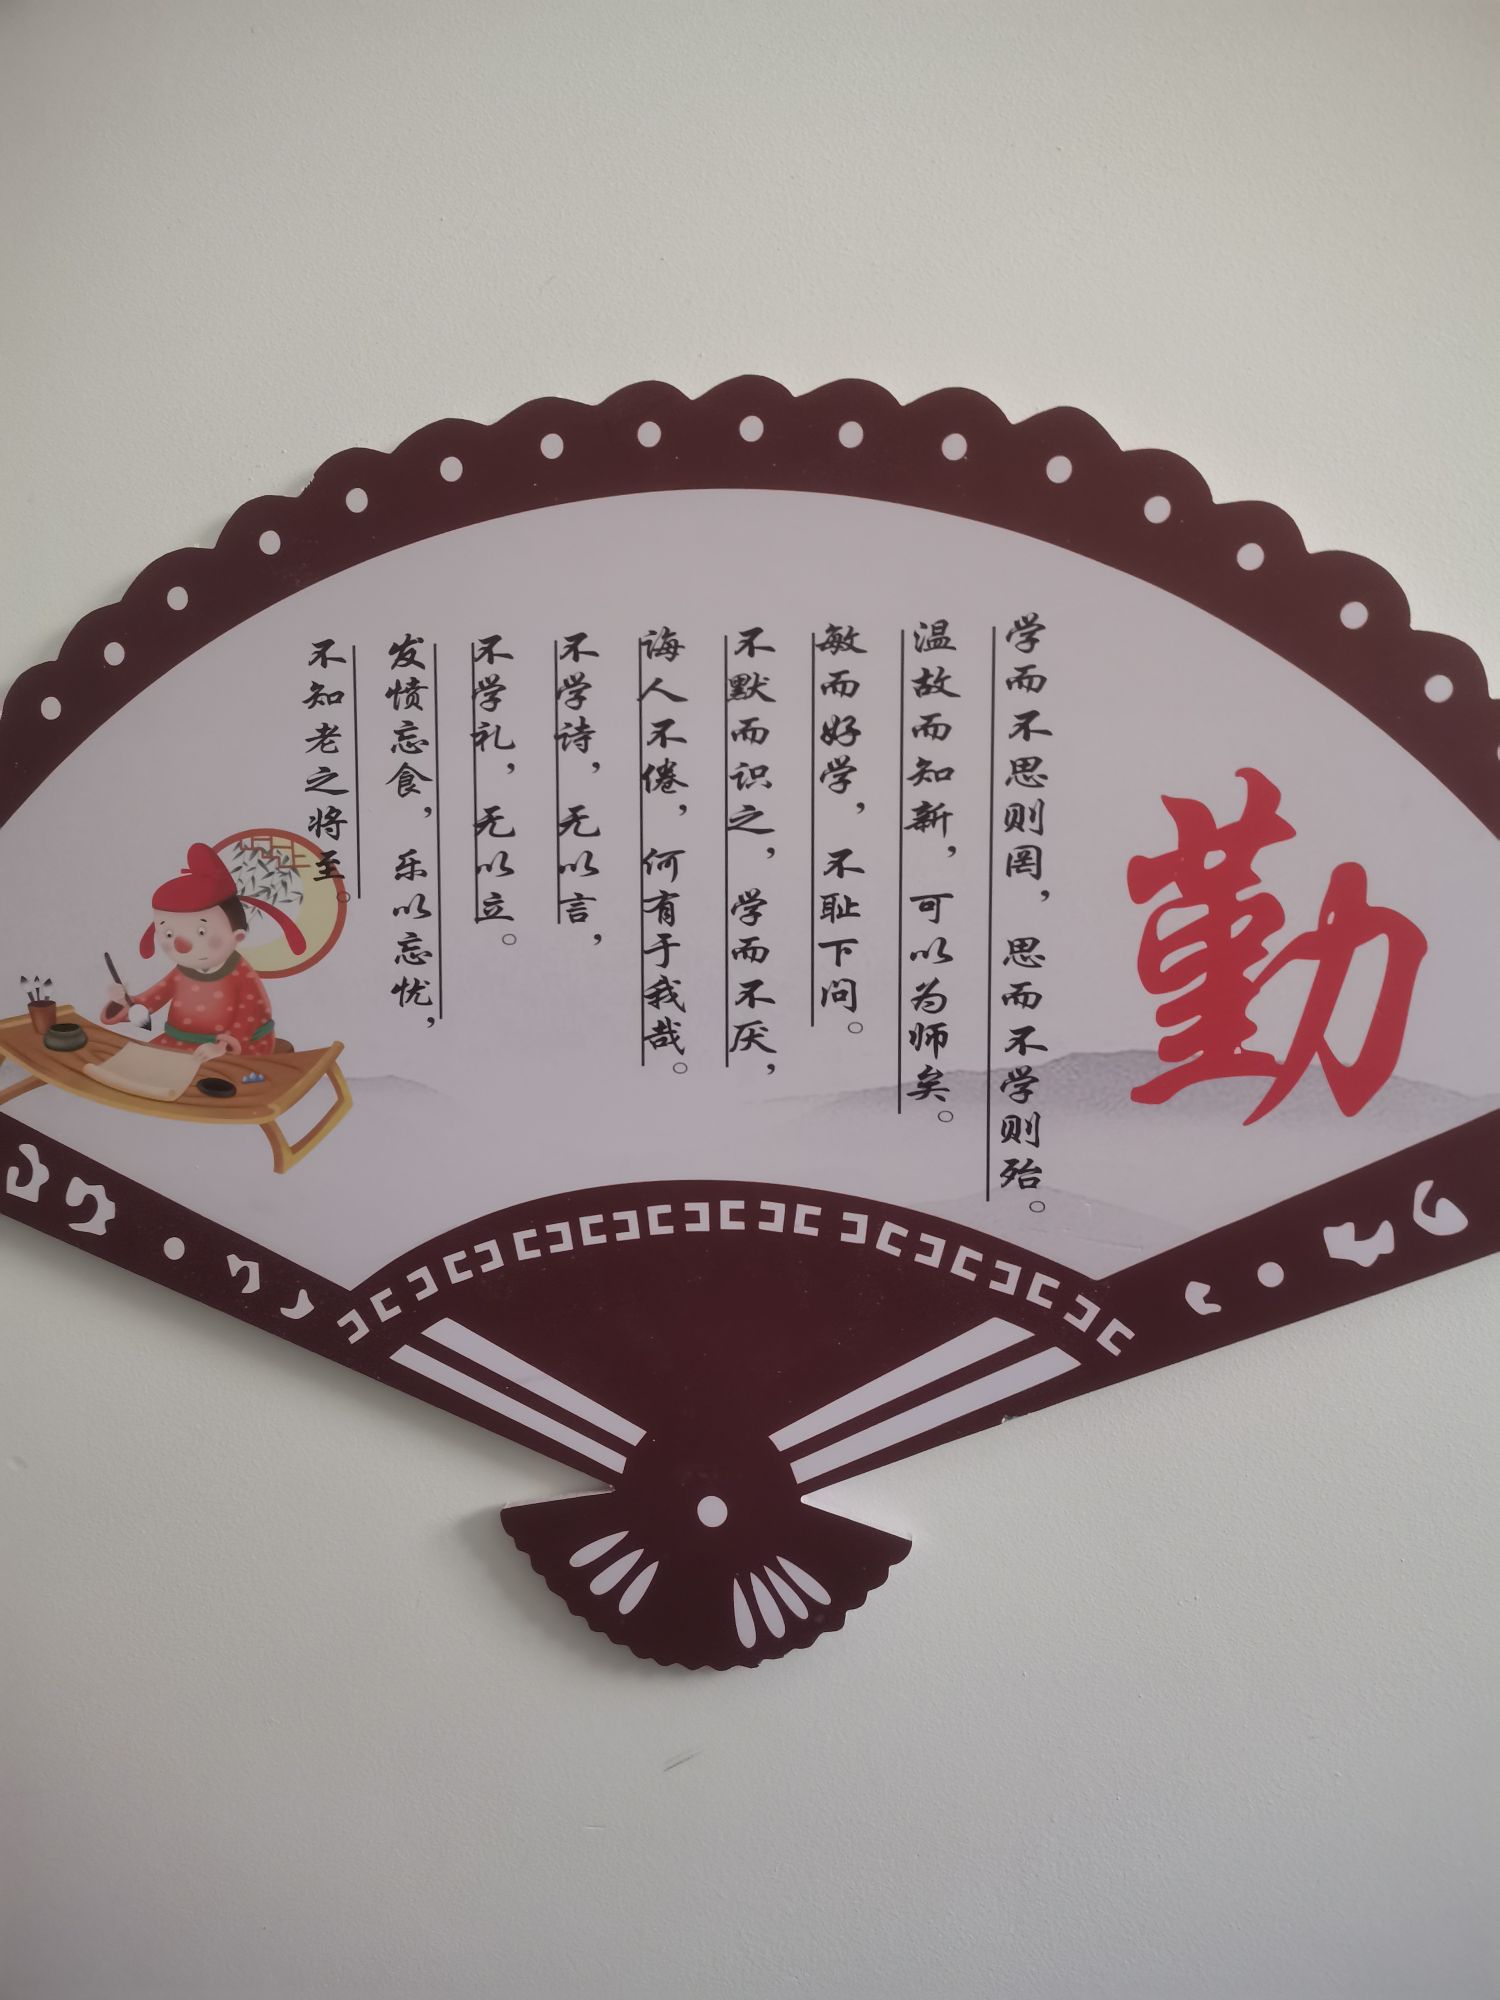 勤
学而不思则罔，思而不学则殆。
温故而知新，可以为师矣。
敏而好学，不耻下问。
不默而识之，学而不厌，
诲人不倦，何有于我哉。
不学诗，无以言，
不学礼，无以立。
发愤忘食，乐以忘忧，
不知老之将至。